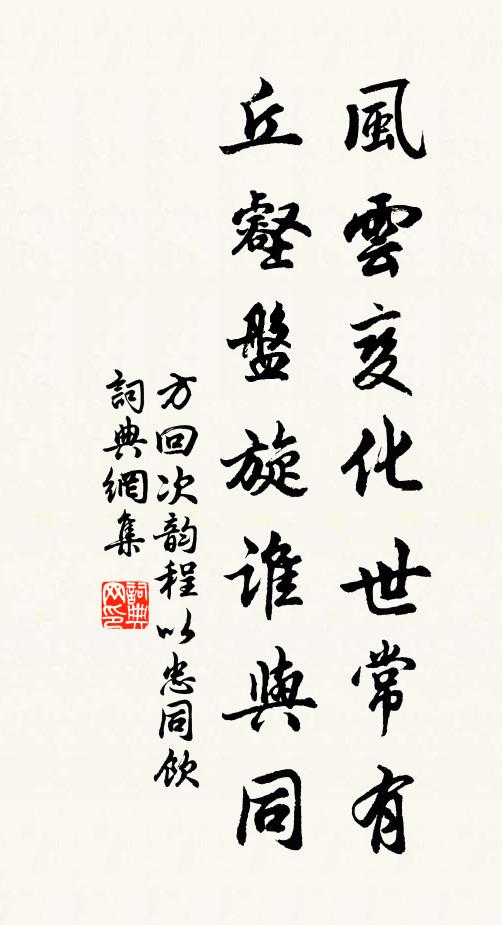 風雲变化世常有
丘壑盤旋谁與同
方回次韵程以忠同飲
詞典網集
詞典
网印